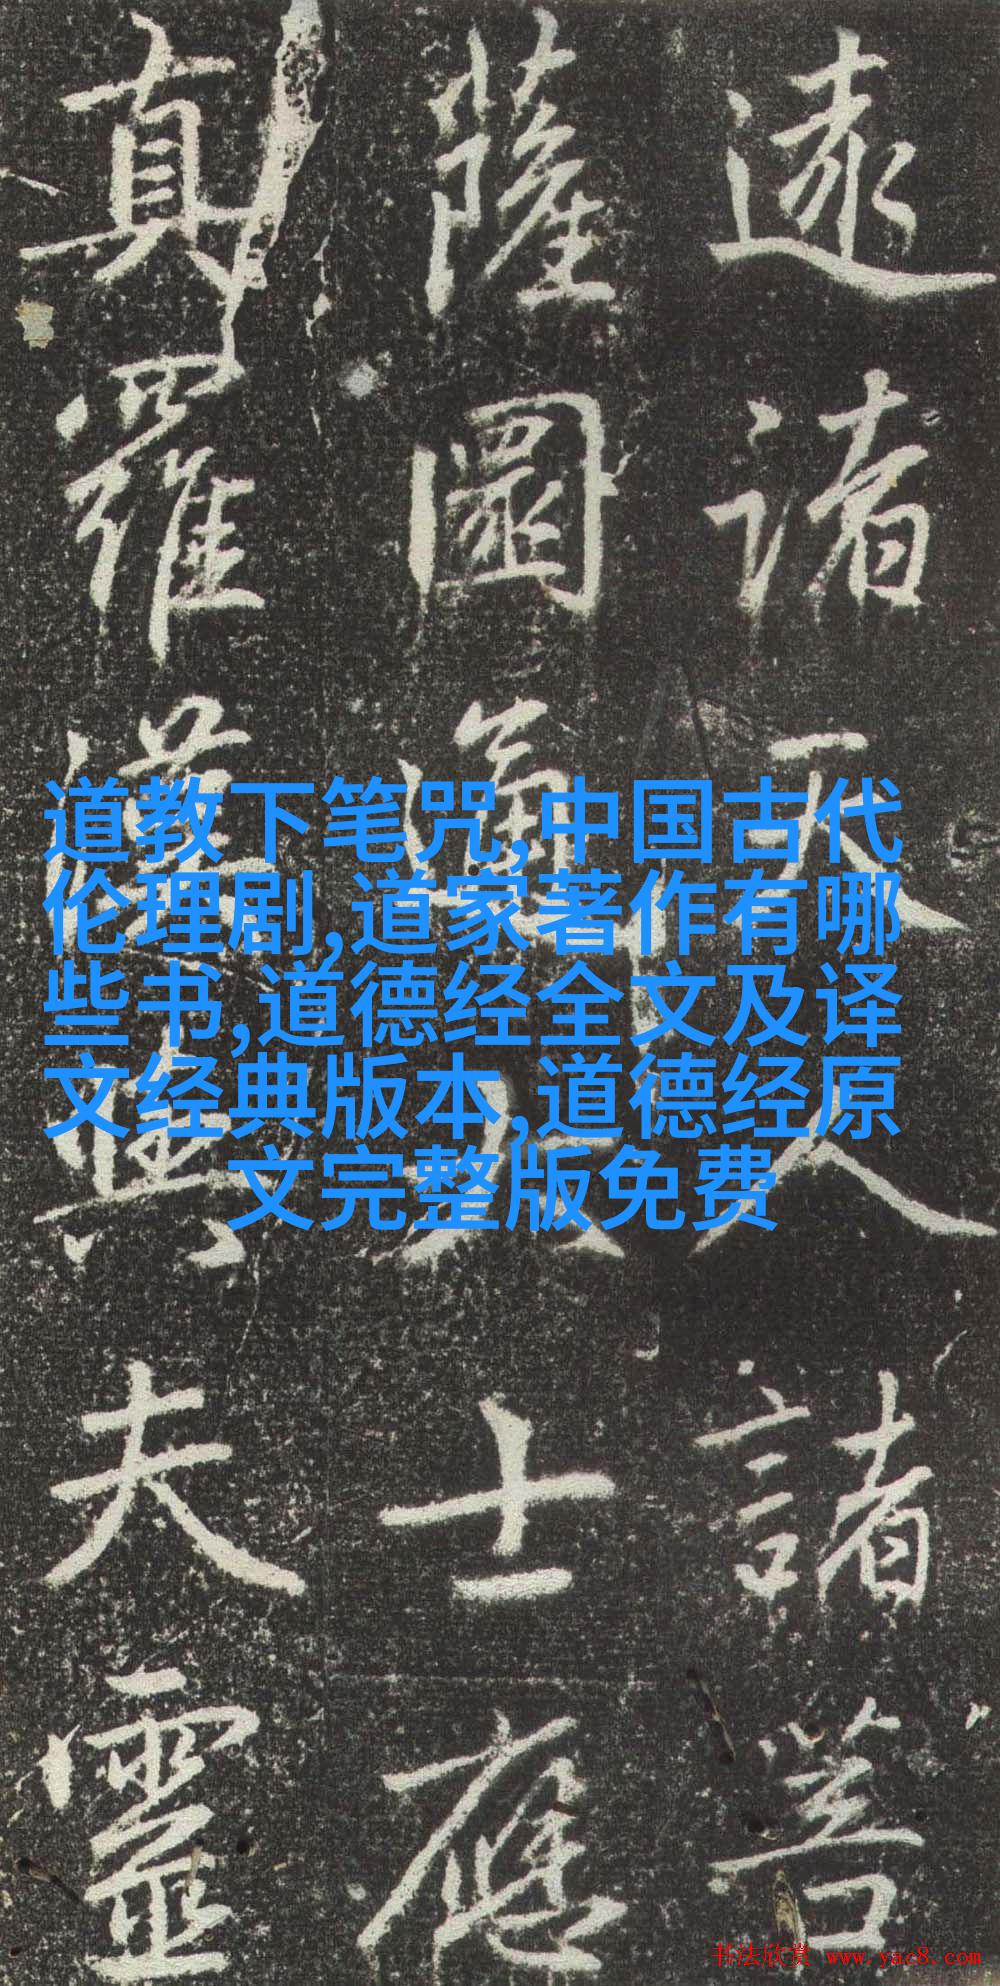 逮諸天人諸菩
薩圓通大士應
真羅漢與夫靈
道教下笔咒,中国古代
伦理剧,道家著作有哪
些书,道德经全文及译
文经典版本,道德经原
文完整版免费
书法欣赏 www.yac8.com